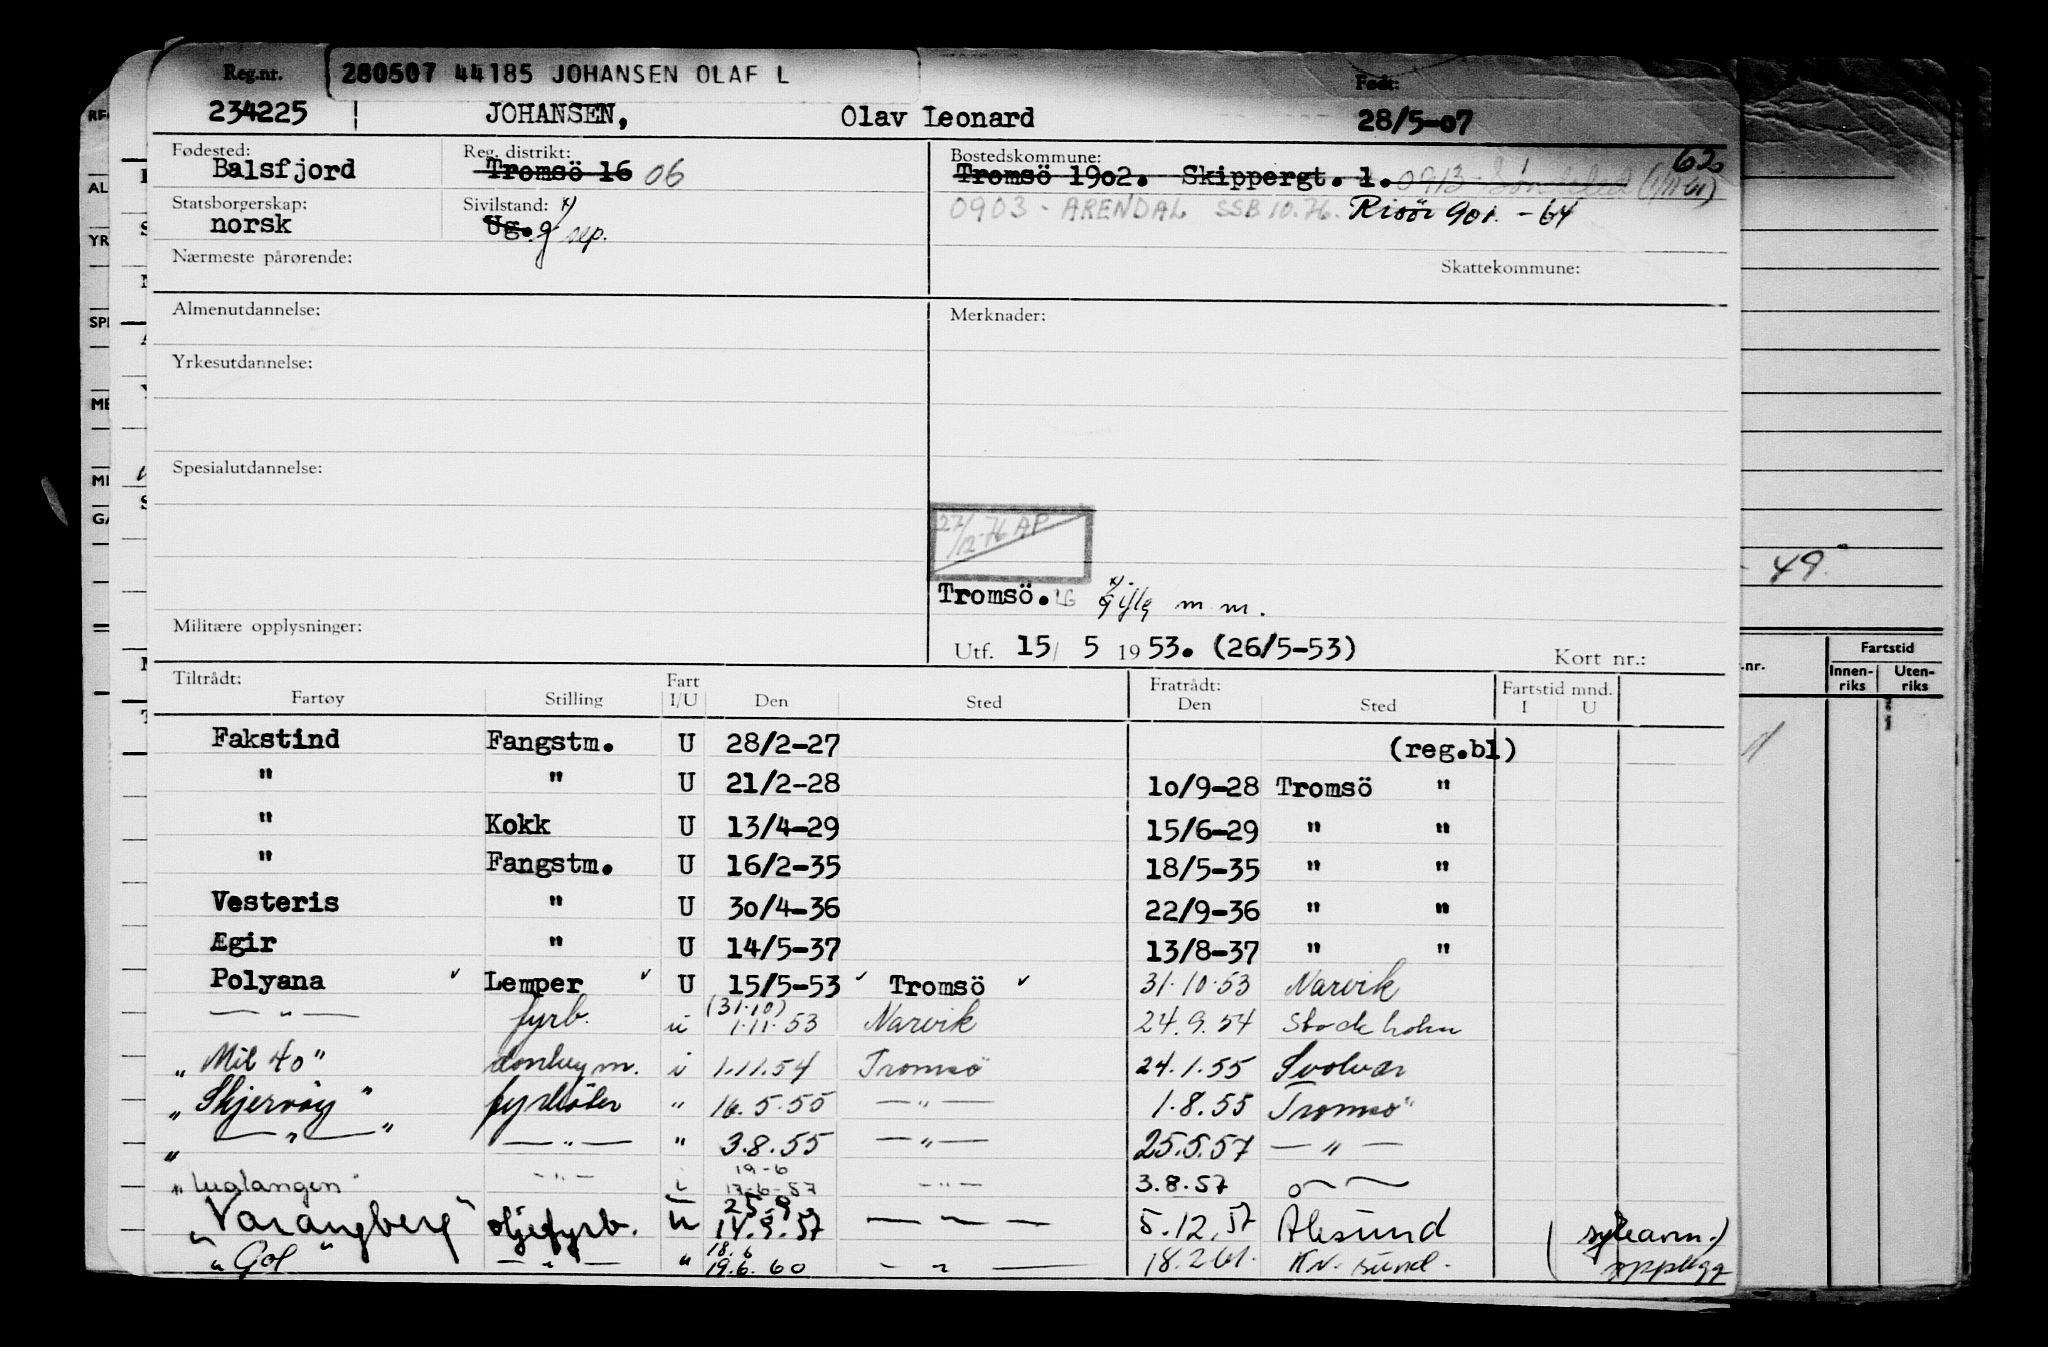 Reg.nr. 280507 44185 JOHANSEN OLAF L Født:
234225 JOHANSEN, Olav Leonard 28/5-07
Fødested: Reg. distrikt: Bostedskommune: 62
Balsfjord Tromsö 16 06 Tromsö 1902. Skippergt. 1. 0913
Statsborgerskap: Sivilstand: x) 0903 - ARENDAL SSB 10.76. Risör 901. - 64
norsk Ug. g sep.
Nærmeste pårørende: Skattekommune:
Almenutdannelse: Merknader:
Yrkesutdannelse:
Spesialutdannelse:
27/12-76 AP
Tromsö. LG x) Gift m.m.
Militære opplysninger: Utf. 15/ 5 1953. (26/5-53) Kort nr.:
- 49.
Tiltrådt: Fart Fratrådt: Fartstid mnd.
Fartøy Stilling I/U Den Sted Den Sted I U
Fakstind Fangstm. U 28/2-27 (reg.bl)
" " U 21/2-28 10/9-28 Tromsö "
" Kokk U 13/4-29 15/6-29 " "
" Fangstm. U 16/2-35 18/5-35 " "
Vesteris " U 30/4-36 22/9-36 " "
Ægir " U 14/5-37 13/8-37 " "
Polyana Lemper U 15/5-53 Tromsö 31.10.53 Narvik
— " — fyrb. u (31.10) 1.11.53 Narvik 24.9.54 Stockholm
"Mil 40" donkeym. i 1.11.54 Tromsö 24.1.55 Svolvær
"Skjervöy" fyrböter " 16.5.55 — " — 1.8.55 Tromsö
" — " — " — " — " 3.8.55 — " — 25.5.57 — " —
— " — i 19-6 17-6-57 — " — 3.8.57
"Varangberg" oljefyrb. u 25.9. 14.9.57 — " — 5.12.57 Ålesund (sykeavm.)
"Gol" — " — " 18.6 19.6.60 — " — 18.2.61. Kr. sund. opplegg
Fartstid
Innen-riks Uten-riks